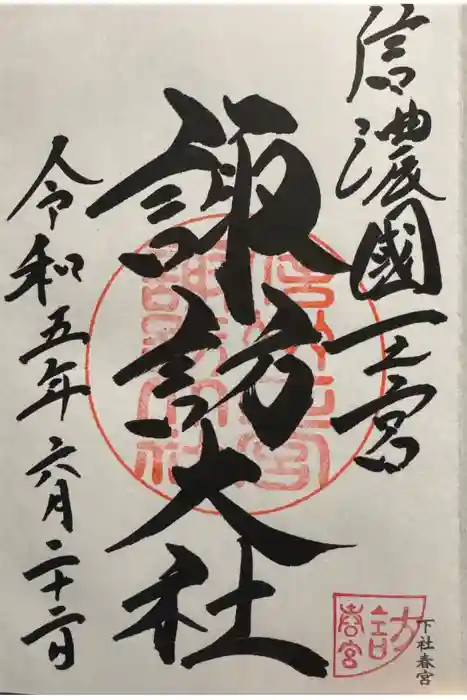 信濃國一之宮
諏訪大社
令和五年六月二十二日
下社春宮
春宮